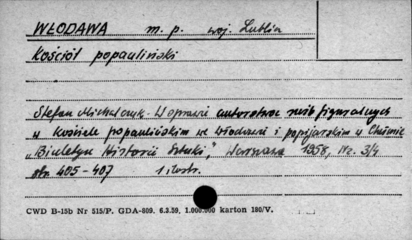 WŁODAWA m. p. woj. Lublin
Kościół popauliński
Stefan Michalczuk. W sprawie autorstwa rzeźb figuralnych
w kościele popaulińskim we Włodawie i popijarskim w Chełmie
„Biuletyn Historii Sztuki," Warszawa 1958, Nr. 3/4
str. 405-407 1 ilustr.
CWD B-15b Nr 515/P. GDA-809. 6.3.59. 1.000.000 karton 180/V.